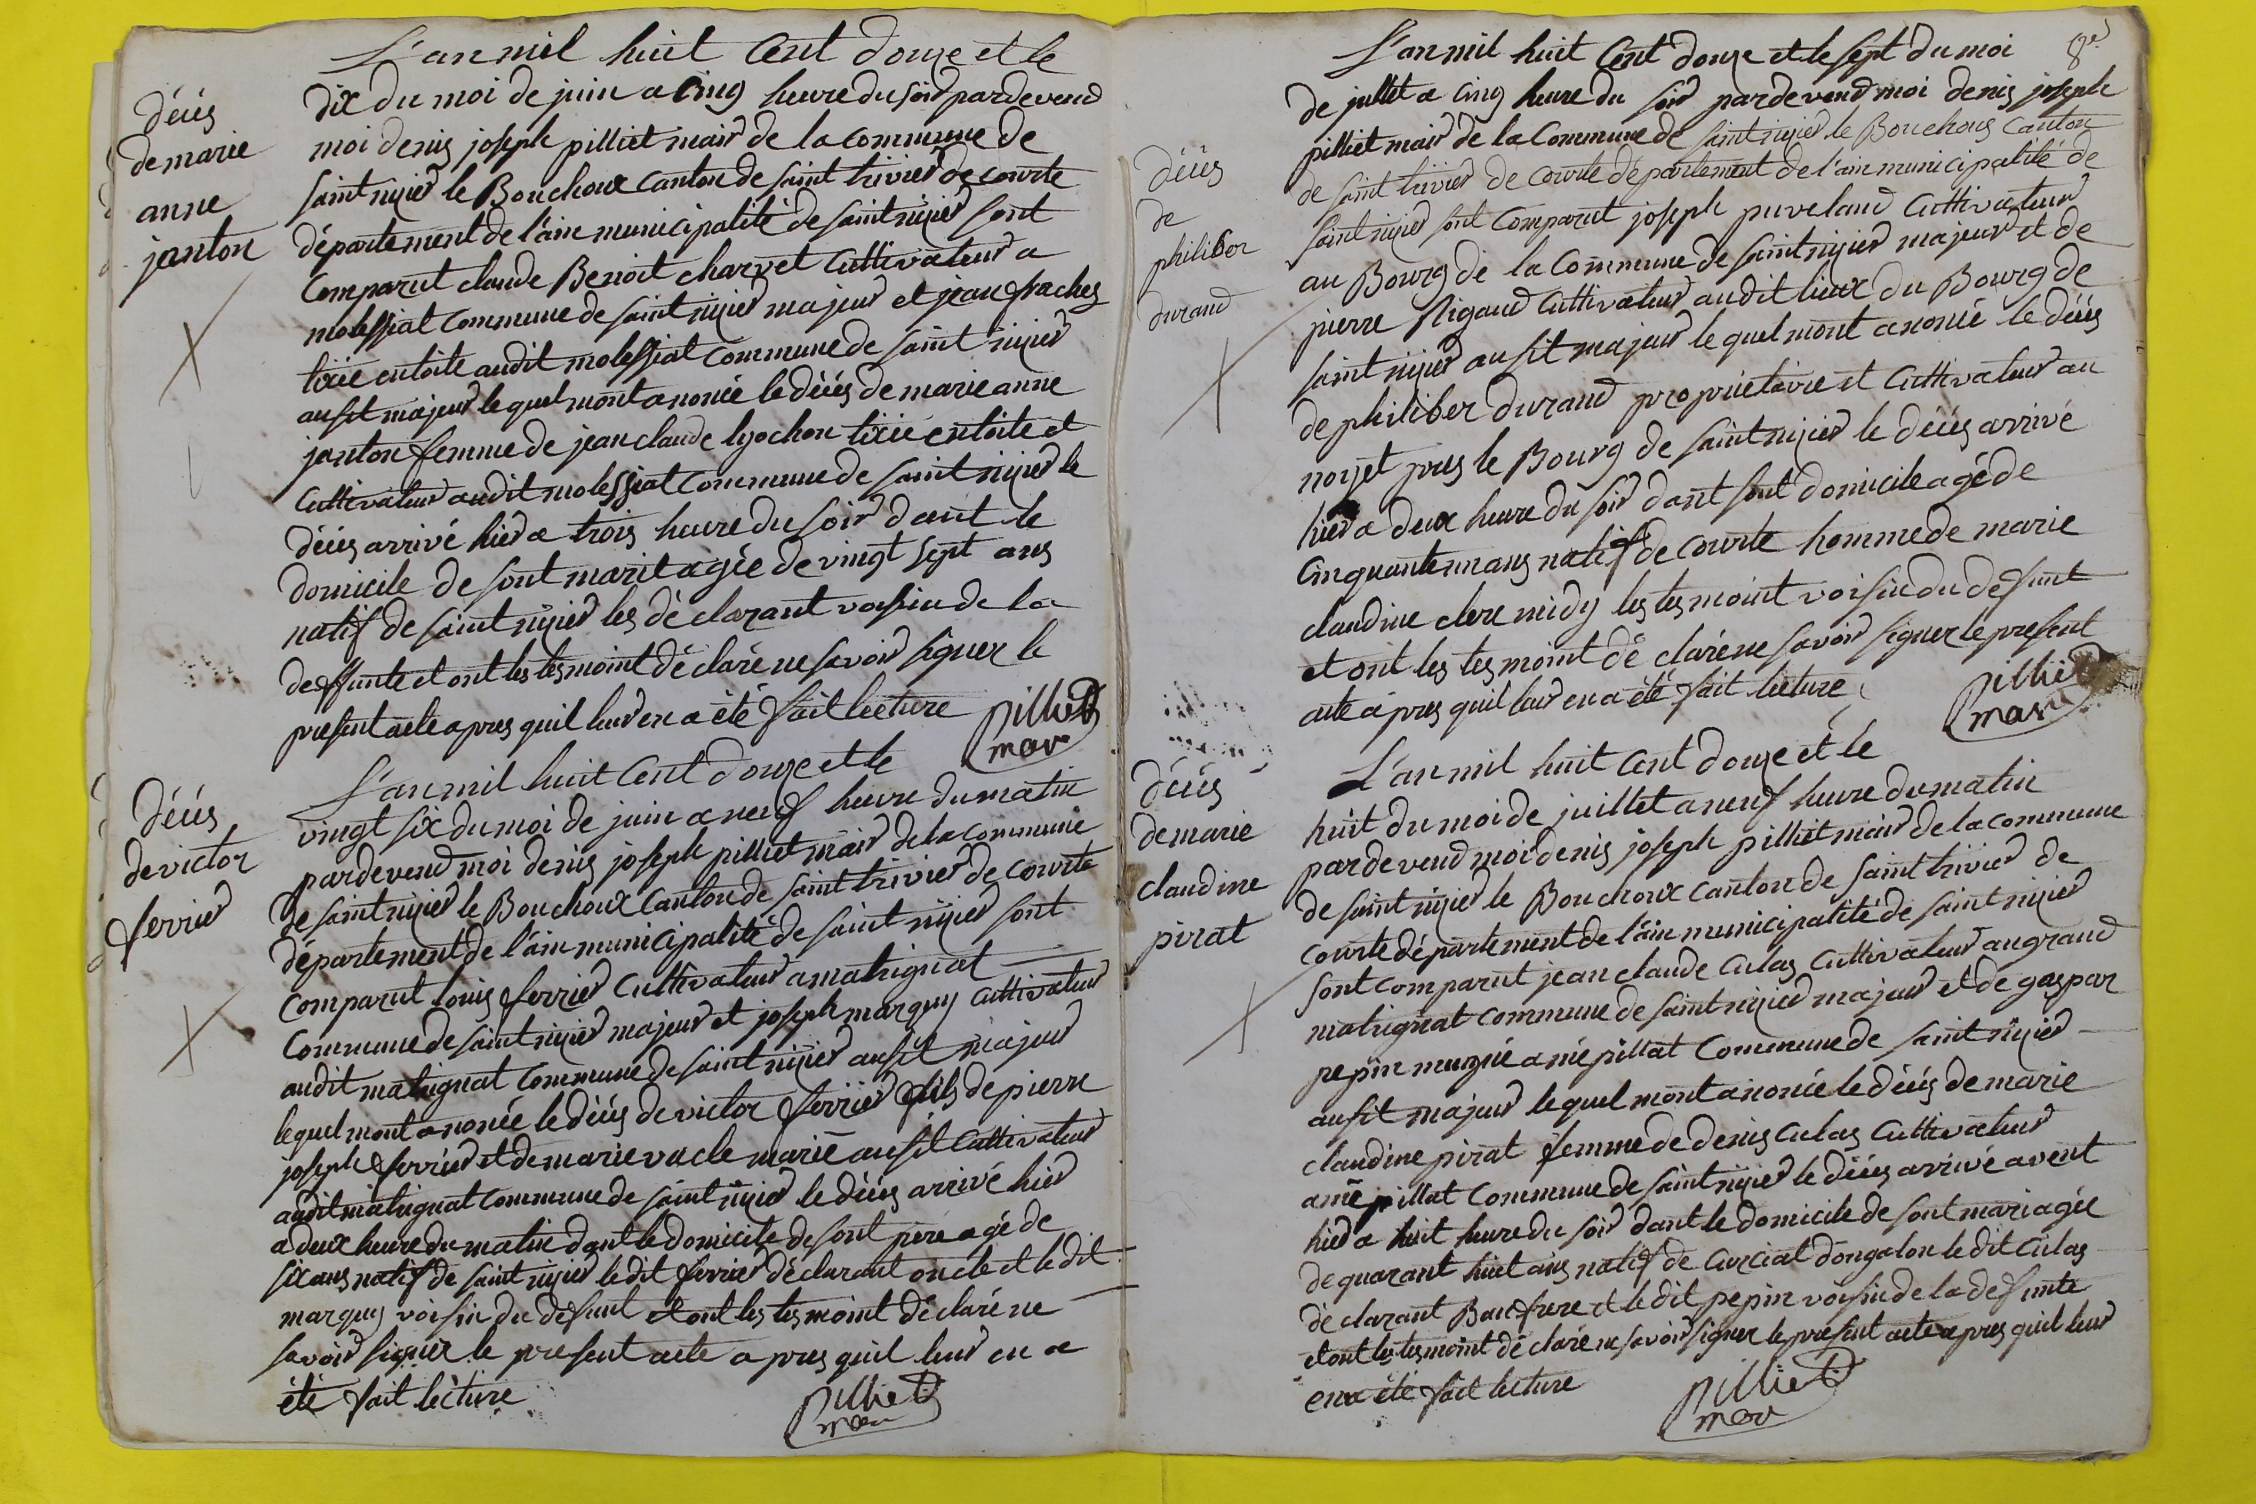 L'an mil huit Cent douze et le
dix du moi de juin a Cinq heure du soir pardevend
moi denis joseph pilliet mair de la Commune de
saint nizier le Bouchoux Canton de saint trivier de courte
département de l'ain municipalité de saint nizier sont
Comparut claude Benoit charvet Cultivateur a
molessiat Commune de saint nizier majeur et jean
tixié entoite audit molessiat Commune de saint nizier
ausit majeur le quel mont anoncé le décés de marie anne
janton femme de jean claude lyochon tixié entoite et
Cultivateur audit molessiat Commune de saint nizier le
décés arrivé hier a trois heure du soir dant le
domicile de sont marit agée de vingt sept ans
natif de saint nizier les déclarant voisin de la
deffunte et ont les tesmoint déclaré ne savoir signer le
present acte apres quil leur en a été fait lecture
pilliet
mair
décés
de marie
anne
janton
L'an mil huit Cent douze et le
vingt six du moi de juin a neuf heure du matin
pardevend moi denis joseph pilliet mair de la commune
de saint nizier le Bouchoux Canton de saint trivier de courte
département de l'ain municipalité de saint nizier sont
comparut louis ferrier Cultivateur a matrignat
Commune de saint nizier majeur et joseph marquy Cultivateur
audit matrignat Commune de saint nizier ausit majeur
lequel mont anoncé le décés de victor ferrier fils de pierre
joseph ferrier et de marie vacle marié ausit Cultivateur
audit matrignat Commune de saint nizier le décés arrivé hier
a deux heure du matin dant le domicile de sont pere agé de
six ans natif de saint nizier ledit ferrier déclarant oncle et ledit
marquy voisin du defunt et ont les tesmoint déclaré ne
savoir signer le present acte apres quil leur en a
été fait lecture
pilliet
mair
décés
de victor
ferrier
8e
L'an mil huit Cent douze et le sept du moi
de jullet a cinq heure du soir pardevend moi denis joseph
pilliet mair de la Commune de saint nizier le Bouchous Canton
de saint trivier de courte département de l'ain municipalité de
saint nizier sont Comparut joseph puveland Cultivateur
au Bourg de la Commune de saint nizier majeur et de
pierre Rigaud Cultivateur audit lieux du Bourg de
saint nizier ausit majeur le quel mont anoncé le décés
de philiber durand proprietaire et Cultivateur au
noyet pres le Bourg de saint nizier le décés arrivé
hier a deux heure du soir dant sont domicile agé de
Cinquante un ans natif de courte homme de marie
claudine clere midy les tesmoint voisin du defunt
et ont les tesmoint déclaré ne savoir signer le present
acte apres quil leur en a été fait lecture
pilliet
mair
décés
de
philiber
durand
L'an mil huit Cent douze et le
huit du moi de juillet a neuf heure du matin
pardevend moi denis joseph pilliet mair de la commune
de saint nizier le Bouchoux Canton de saint trivier de
courte département de l'ain municipalité de saint nizier
sont comparut jean claude Culas Cultivateur au grand
matrignat commune de saint nizier majeur et de gaspar
pepin munié a mépillat Commune de saint nizier
ausit majeur lequel mont anoncé le décés de marie
claudine pirat femme de denis Culas Cultivateur
a mépillat Commune de saint nizier le décés arrivé avent
hier a huit heure du soir dant le domicile de sont mari agée
de quarant huit ans natif de Curciat dongalon le dit Culas
déclarant Baufrere et le dit pepin voisin de la defunte
et ont les tesmoint déclaré ne savoir signer le present acte apres quil leur
en a été fait lecture
pilliet
mair
décés
de marie
claudine
pirat